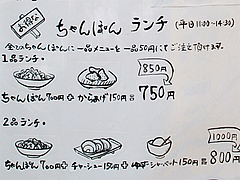 ちゃんぽん ランチ (平日11:00~14:30)
全てのちゃんぽんに一品メニューを一品50円にてご注文頂けます。
1品ランチ・
850円
ちゃんぽん700円 からあげ150円 750円
2品ランチ・
1000円
ちゃんぽん700円 チャーシュー150円 シャーベット150円 800円